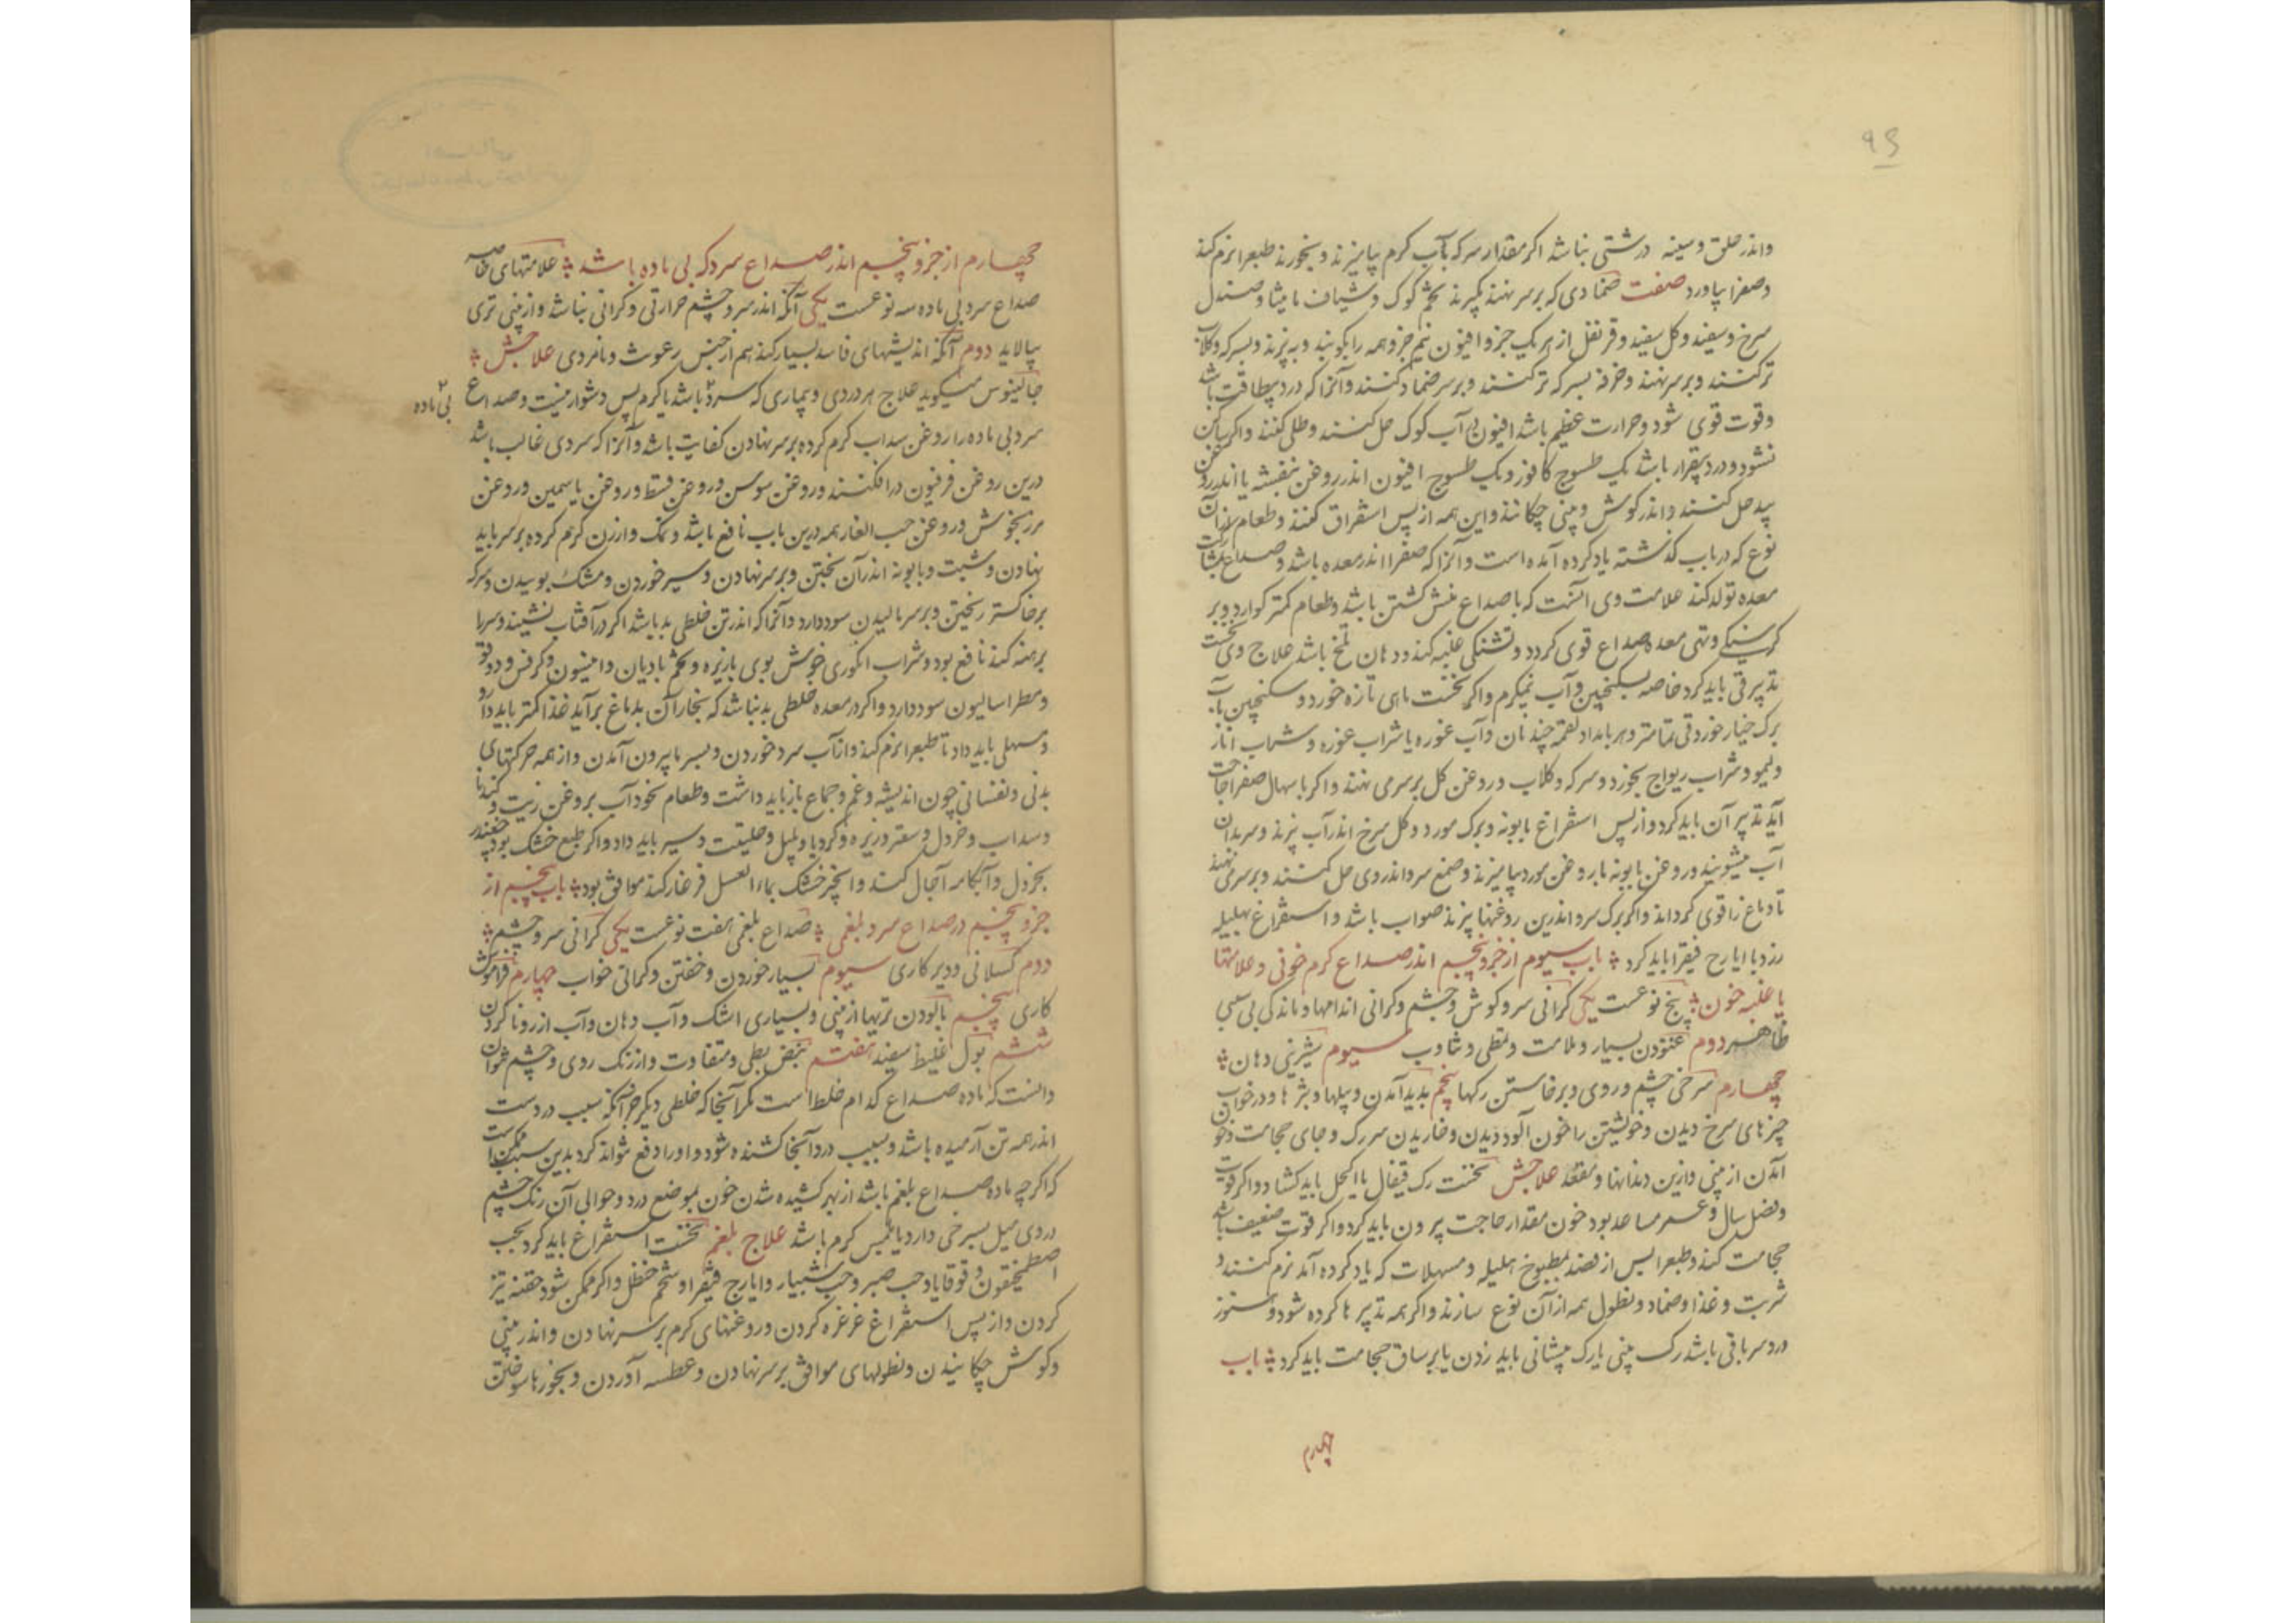 ۹۶
واندر حلق و سینه درشتی نباشد اکر مقدار سرکه بآب کرم بیامیزند و بخورند طبع را نرم کند
و صفرا بیاورد صفت ضمادی که بر سر نهند بکیرند تخم کوک و شیاف مامیثا و صندل
سرخ و سفید و کل سفید و قرنفل از هر یک جزو افیون نیم جزو همه را بکوبند و به بزند و بسرکه و کلاب
تر کنند و بر سر نهند و خرفه بسرکه تر کنند و بر سر ضماد کنند و آنرا که درد بیطاقت باشد
و قوت قوی شود و حرارت عظیم باشد افیون در آب کوک حل کنند و طلی کنند و اکر ساکن
نشود و درد بیقرار باشد یک طسوج کافور و یک طسوج افیون اندر روغن بنفشه یا اندر روغن
بید حل کنند و اندر کوش و بینی چکانند و این همه از پس استفراق کنند و طعام از آن
نوع که در باب کذشته یاد کرده آمده است و آنرا که صفرا اندر معده باشد و صداع بمشارکت
معده تولد کند علامت وی آنست که با صداع منش کشتن باشد و طعام کمتر کوارد و بر
کرسنکی و تهی معده صداع قوی کردد و تشنکی غلبه کند و دهان تلخ باشد علاج وی نخست
تدبیر قی باید کرد خاصه بسکنجبین و آب نیمکرم و اکر نخست ماهی تازه خورد و سکنجبین بآب
برک خیار خورد قی تمامتر و هر بامداد لقمه چند نان و آب غوره یا شراب غوره و شراب انار
و لیمو و شراب ریواج بخورد و سرکه و کلاب و روغن کل بر سر می نهند و اکر باسهال صفرا حاجت
آید تدبیر آن باید کرد و از پس استفراغ بابونه و برک مورد و کل سرخ اندر آب بزند و سر بدان
آب میشویند و روغن بابونه با روغن مورد بیامیزند و صمغ سرو اندر وی حل کنند و بر سر می نهند
تا دماغ را قوی کرداند و اکر برک سرو اندرین روغنها بپزند صواب باشد و استفراغ بهلیله
زرد با ایارج فیقرا باید کرد باب سیوم از جزو پنجم اندر صداع کرم خونی و علامتها
یا غلبه خون پنج نوعست یکی کرانی سر و کوش و چشم و کرانی اندامها و ماندکی بی سببی
ظاهر دوم غنودن بسیار و ملامت و تمطی و ثناوب سیوم شیرینی دهان
چهارم سرخی چشم و روی و برخاستن رکها پنجم پدید آمدن دبیلها و بثرها و در خواب
چیزهای سرخ دیدن و خویشتن را خون آلود دیدن و خاریدن سر رک و جای حجامت و خون
آمدن از بینی و ازین دندانها و مقعد علاجش نخست رک قیفال یا اکحل باید کشاد و اکر قوت
و فصل سال و عمر مساعد بود خون مقدار حاجت بیرون باید کرد و اکر قوت ضعیف باشد
حجامت کند و طبع را پس از فصد بمطبوخ هلیله و مسهلات که یاد کرده آمد نرم کنند و
شربت و غذا و ضماد و نطول همه از آن نوع سازند و اکر همه تدبیرها کرده شود و هنوز
درد سر باقی باشد رک بینی یا رک پیشانی باید زدن یا بر ساق حجامت باید کرد باب
چهارم
چهارم از جزو پنجم اندر صداع سرد که بی ماده باشد علامتهای خاصه
صداع سرد بی ماده سه نوعست یکی آنکه اندر سر و چشم حرارتی و کرانی نباشد و از بینی تری
بپالاید دوم آنکه اندیشهای فاسد بسیار کند هم از جنس رعونت و نامردی علاجش
جالینوس میکوید علاج هر دردی و بیماری که سرد باشد یا کرم پس دشوار نیست و صداع
بی ماده
سرد بی ماده را روغن سداب کرم کرده بر سر نهادن کفایت باشد و آنرا که سردی غالب باشد
درین روغن فرفیون در افکنند و روغن سوسن و روغن قسط و روغن یاسمین و روغن
مرزنجوش و روغن حب الغار همه درین باب نافع باشد و نمک و ارزن کرم کرده بر سر باید
نهادن و شبت و بابونه اندر آن پختن و بر سر نهادن و سیر خوردن و مشک بوییدن و سرکه
بر خاکستر ریختن و بر سر مالیدن سود دارد و آنرا که اندر تن خلطی بد باشد اکر در آفتاب نشیند و سر را
برهنه کند نافع بود و شراب انکوری خوش بوی بازیره و تخم بادیان و انیسون و کرفس و دوقو
و مطراسالیون سود دارد و اکر در معده خلطی بد نباشد که بخار آن بدماغ برآید غذا کمتر باید داد
و مسهلی باید داد تا طبع را نرم کند و از آب سرد خوردن و بسرما بیرون آمدن و از همه حرکتهای
بدنی و نفسانی چون اندیشه و غم و جماع باز باید داشت و طعام نخود آب بروغن زیت و کندنا
و سداب و خردل و سعتر و زیره و کرویا و پلپل و حلتیت و سیر باید داد و اکر طبع خشک بود چغندر
بخردل و آبکامه آجال کند و انجیر خشک بماء العسل فرغار کند موافق بود باب پنجم از
جزو پنجم در صداع سرد بلغمی صداع بلغمی هفت نوعست یکی کرانی سر و چشم
دوم کسلانی و دیر کاری سیوم بسیار خوردن و خفتن و کرانی خواب چهارم فراموش
کاری پنجم پالودن تریها از بینی و بسیاری اشک و آب دهان و آب از رو نا کردن
ششم بول غلیظ سفید هفتم نبض بطی و متفاوت و از رنک روی و چشم بتوان
دانست که ماده صداع کدام خلط است مکر آنجا که خلطی دیکر جز آنکه سبب دردست
اندر همه تن آرمیده باشد و بسبب درد آنجا کشنده شود و او را دفع نتواند کرد بدین سبب ممکن است
که اکر چه ماده صداع بلغم باشد از بهر کشیده شدن خون بموضع درد و حوالی آن رنک چشم
و روی میل بسرخی دارد یا بلمس کرم باشد علاج بلغم نخست استفراغ باید کرد بحب
اصطمخیقون و قوقایا و حب صبر و حب شبیار و ایارج فیقرا و شحم حنظل و اکر ممکن شود حقنه تیز
کردن و از پس استفراغ غرغره کردن و روغنهای کرم بر سر نهادن و اندر بینی
و کوش چکانیدن و نطولهای موافق بر سر نهادن و عطسه آوردن و بخورها سوختن